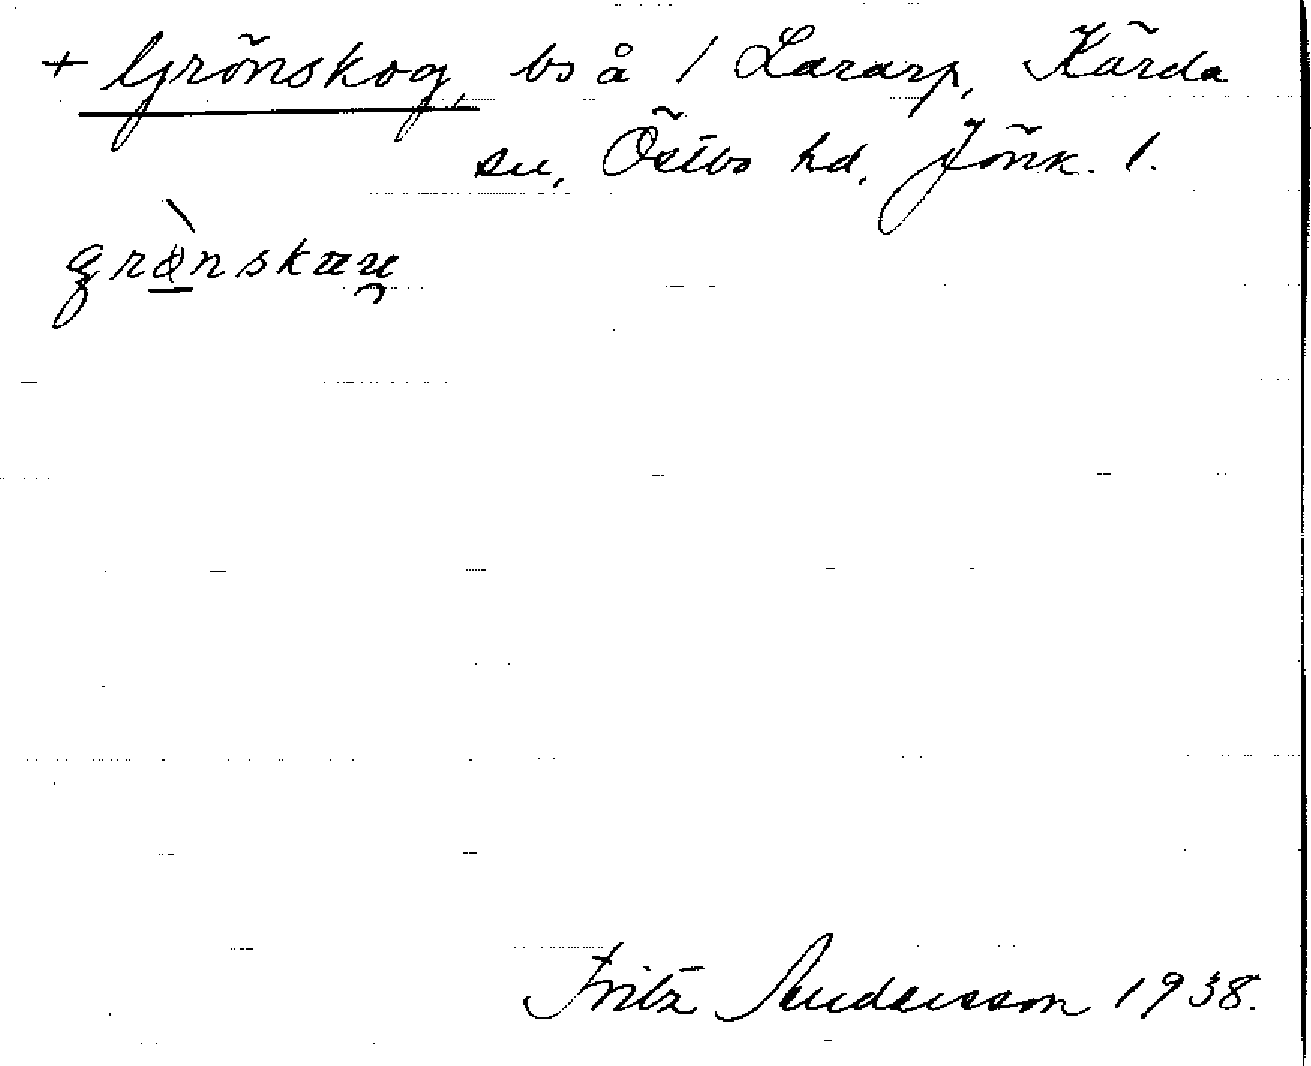 + Grönskog, bs å 1 Lararp, Kärda
sn, Östbo hd, Jönk. l.
Fritz Andersson 1938.